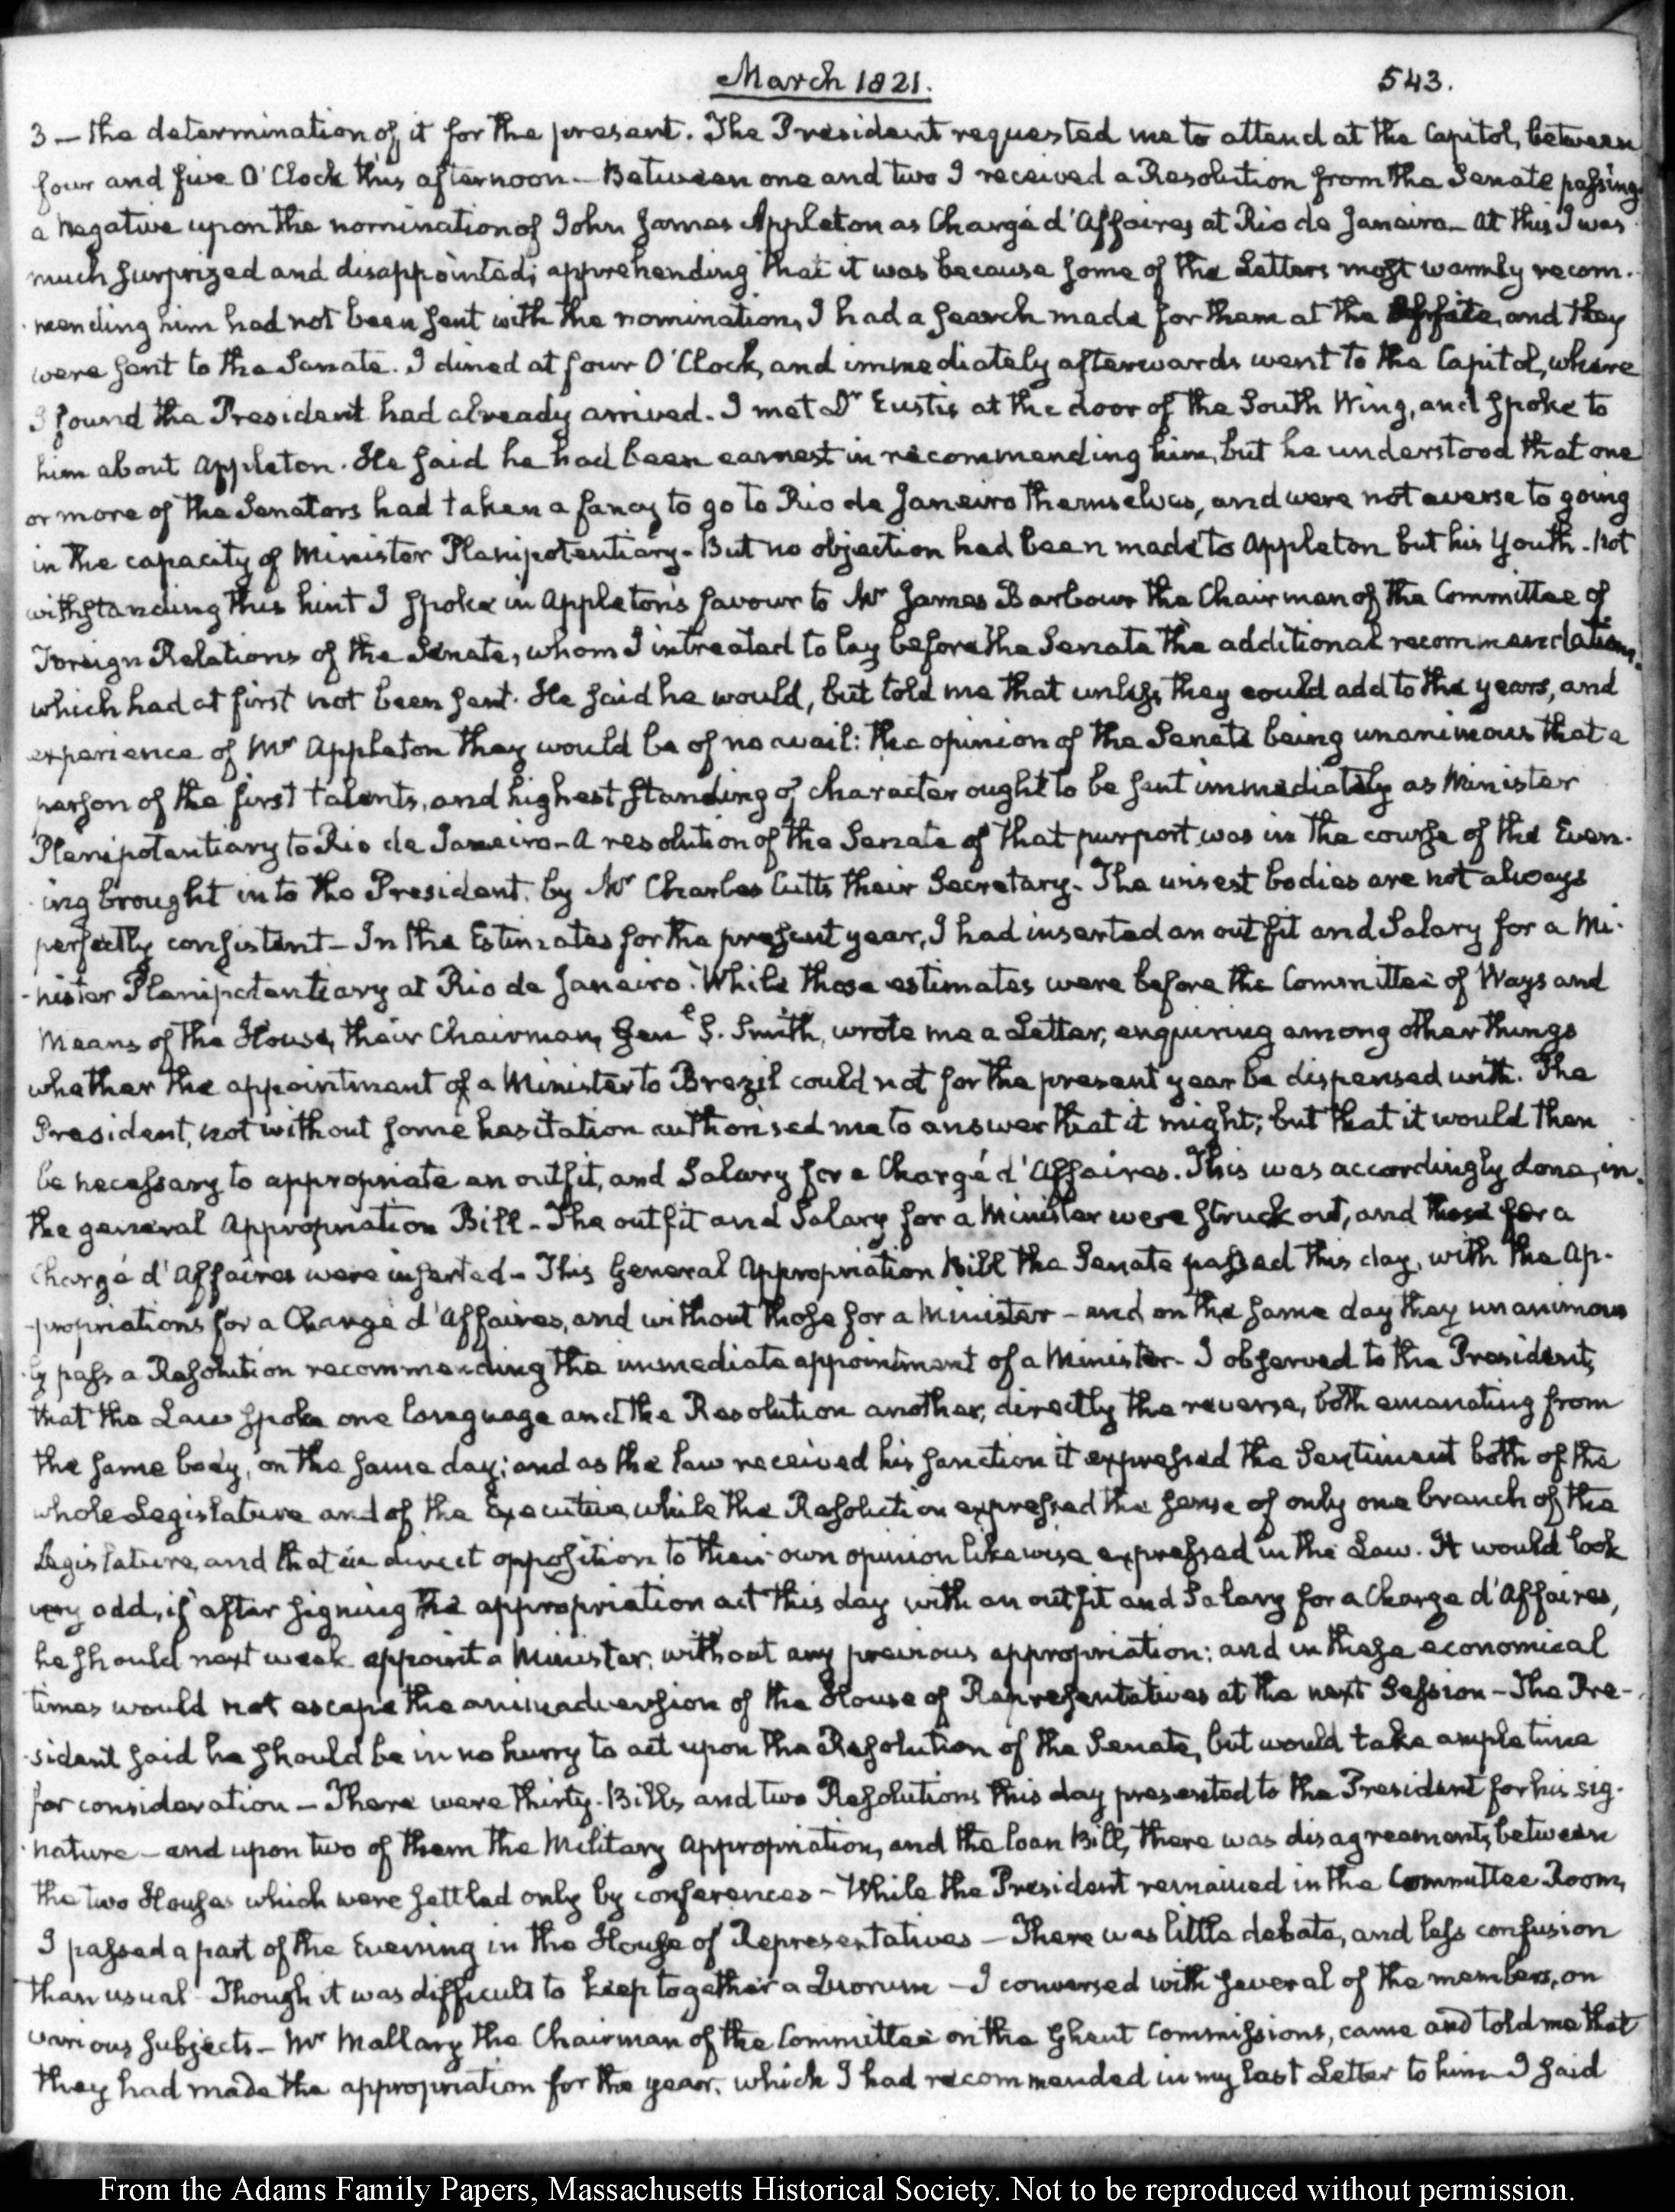 March 1821. 543.
3 — the determination of it for the present. The President requested me to attend at the Capitol, between
four and five O'Clock this afternoon — Between one and two I received a Resolution from the Senate passing
a Negative upon the nomination of John James Appleton as Chargé d'Affaires at Rio de Janeiro — At this I was
much surprized and disappointed; apprehending that it was because some of the Letters most warmly recom-
-mending him had not been sent with the nomination, I had a search made for them at the Office, and they
were sent to the Senate. I dined at four O'Clock, and immediately afterwards went to the Capitol, where
I found the President had already arrived. I met Dr Eustis at the door of the South Wing, and spoke to
him about Appleton. He said he had been earnest in recommending him, but he understood that one
or more of the Senators had taken a fancy to go to Rio de Janeiro themselves, and were not averse to going
in the capacity of Minister Plenipotentiary — But no objection had been made to Appleton but his Youth — Not
withstanding this hint I spoke in Appleton's favour to Mr James Barbour the Chairman of the Committee of
Foreign Relations of the Senate, whom I intreated to lay before the Senate the additional recommendations,
which had at first not been sent. He said he would, but told me that unless they could add to the years, and
experience of Mr Appleton they would be of no avail: the opinion of the Senate being unanimous that a
person of the first talents, and highest standing of character ought to be sent immediately as Minister
Plenipotentiary to Rio de Janeiro — A resolution of the Senate of that purport was in the course of the Even-
-ing brought in to the President by Mr Charles Cutts their Secretary — The wisest bodies are not always
perfectly consistent — In the Estimates for the present year, I had inserted an outfit and Salary for a Mi-
-nister Plenipotentiary at Rio de Janeiro. While those estimates were before the Committee of Ways and
Means of the House, their Chairman, Genl S. Smith, wrote me a Letter, enquiring among other things
whether the appointment of a Minister to Brazil could not for the present year be dispensed with. The
President, not without some hesitation authorised me to answer that it might; but that it would then
be necessary to appropriate an outfit, and Salary for a Chargé d'Affaires. This was accordingly done, in
the general Appropriation Bill — The outfit and Salary for a Minister were struck out, and those for a
Chargé d'Affaires were inserted — This General Appropriation Bill the Senate passed this day, with the Ap-
-propriations for a Chargé d'Affaires, and without those for a Minister — and on the same day they unanimous
-ly pass a Resolution recommending the immediate appointment of a Minister — I observed to the President,
that the Law spoke one language and the Resolution another, directly the reverse, both emanating from
the same body, on the same day; and as the law received his sanction it expressed the Sentiment both of the
whole Legislature and of the Executive, while the Resolution expressed the sense of only one branch of the
Legislature, and that in direct opposition to their own opinion likewise expressed in the Law. It would look
very odd, if after signing the appropriation act this day with an outfit and Salary for a Charge d'Affaires,
he should next week appoint a Minister, without any previous appropriation: and in these economical
times would not escape the animadversion of the House of Representatives at the next Session — The Pre-
-sident said he should be in no hurry to act upon the Resolution of the Senate, but would take ample time
for consideration — There were thirty Bills and two Resolutions this day presented to the President for his sig-
-nature — and upon two of them the Military Appropriation, and the loan Bill, there was disagreements between
the two Houses which were settled only by conferences — While the President remained in the Committee Room,
I passed a part of the Evening in the House of Representatives — There was little debate, and less confusion
than usual Though it was difficult to keep together a Quorum — I conversed with several of the members, on
various subjects — Mr Mallary the Chairman of the Committee on the Ghent Commissions, came and told me that
they had made the appropriation for the year, which I had recommended in my last Letter to him — I said
From the Adams Family Papers, Massachusetts Historical Society. Not to be reproduced without permission.